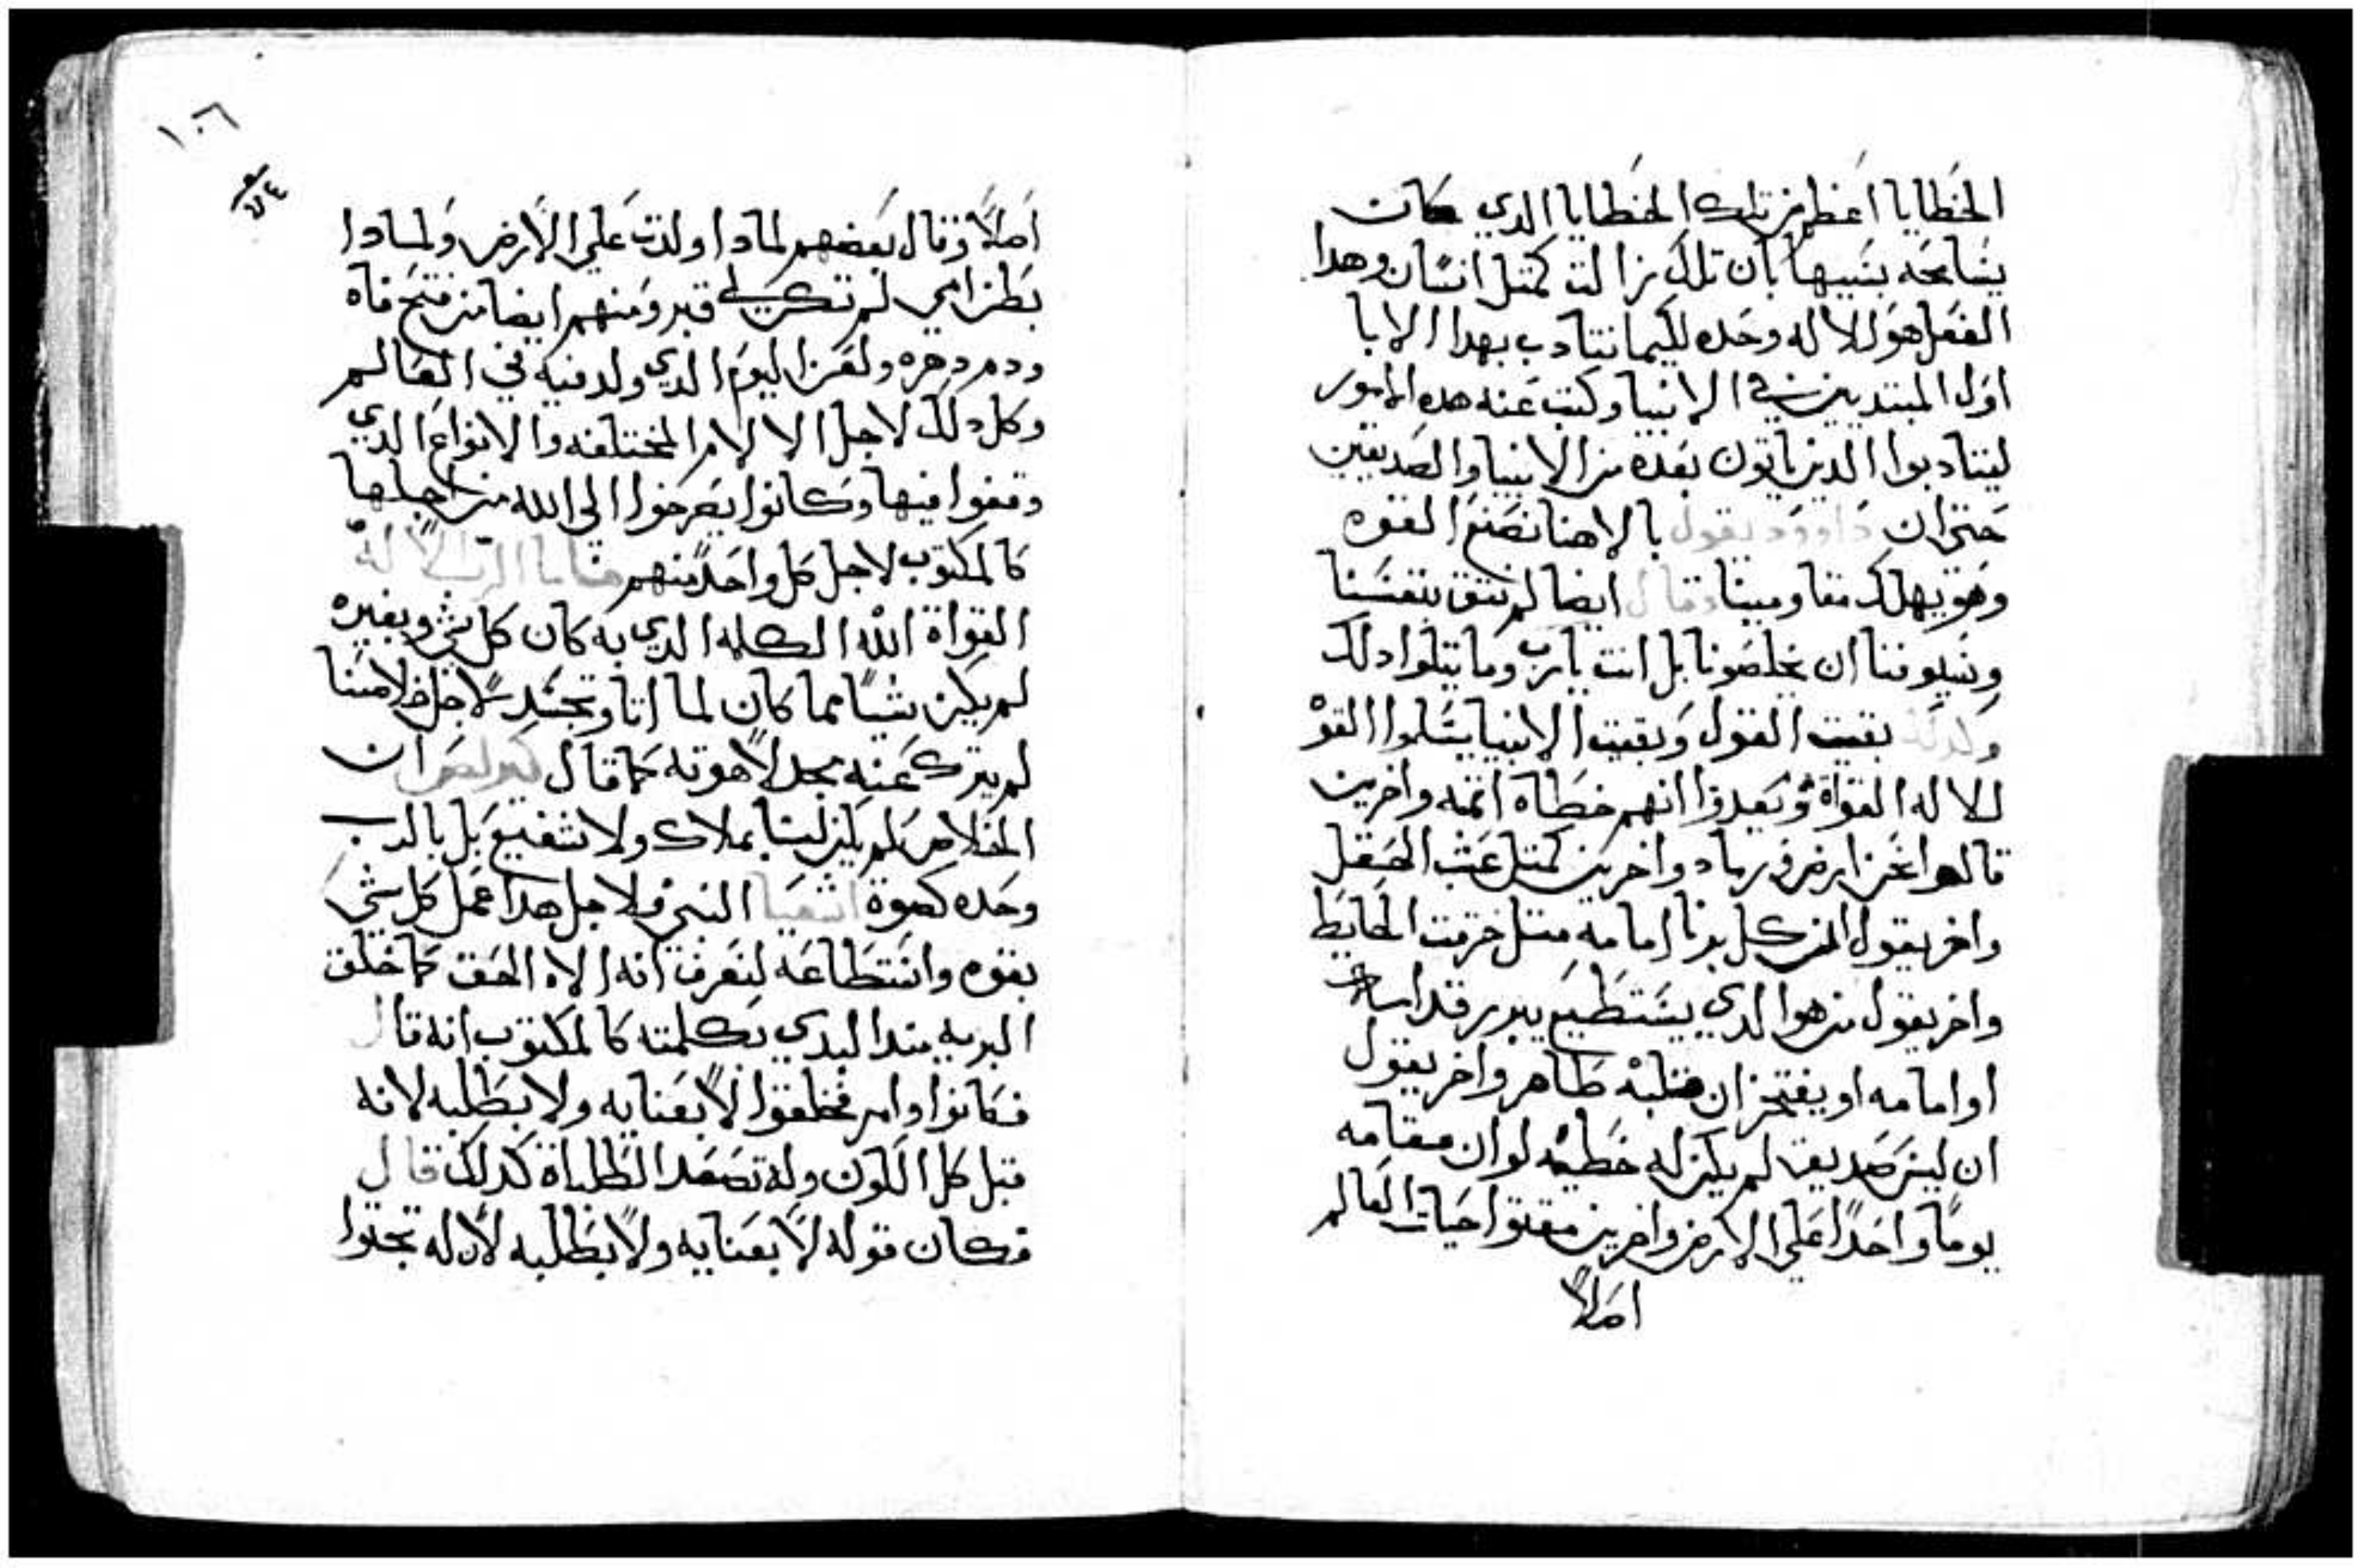 الخطايا اعظم من تلك الخطايا الدي كانت
يسامحه بسببها بان تلك زالت كمتل انسان وهدا
الفعل هو للاله وحده لكيما نتادب بهدا الابا
اول المبتديين في الانبيا وكتب عنه هده الامور
ليتادبوا الدين ياتون بعده من الانبيا والصديقين
حتى ان داوود يقول بالاهنا نصنع القوه
وهو يهلك مقاومينا وقال ايضا لم نتق بقسنا
وسيوفنا ان يخلصونا بل انت يارب وما يتلوا دلك
وكدلك بقيت القول وبقيت الانبيا يسلموا القوه
للاله القواة وتعدوا انهم خطاه اتمه واخرين
قالوا نحن ارض ورماد واخرين كمتل عشب الحقل
واخر يقول ان كل برنا امامه متل خرقت الحايط
واخر يقول من هوا الدي يستطيع يبرر قداسات
او امامه او يفتخر ان قلبه طاهر واخر يقول
ان ليس صديق لم يكن له خطيه لو ان مقامه
يوماً واحداً على الارض واخرين مقتوا حيات العالم
اصلاً
١٠٦
اصلاً وقال بعضهم لمادا ولدت على الارض ولمادا
بطن امي لم تكن لي قبر ومنهم ايضا من فتح فاه
ودم دهره ولعن اليوم الدي ولد فيه في العالم
وكل دلك لاجل الالام المختلفه والانواع الدي
وقفوا فيها وكانوا يصرخوا الى الله من اجلها
كالمكتوب لاجل كل واحد منهم فاما الرب الاله
القواة الله الكلمه الدي به كان كل شي وبغيره
لم يكن شياً مما كان لما اتا وتجسد لاجل خلاصنا
لم يترك عنه مجد لاهوته كما قال بولص ان
الخلاص لم يكن لنا بملاك ولا شفيع بل بالرب
وحده كصوة اشعيا النبي ولاجل هدا عمل كل شي
بقوه واستطاعه لنعرف انه الاه الحق كما خلق
البريه مند البدي بكلمته كالمكتوب انه قال
فكانوا وامر فخلقوا لا بعنايه ولا بطلبه لانه
قبل كل الكون وله تصعد الطلباة كدلك قال
فكان قوله لا بعنايه ولا بطلبه لان له تجتوا